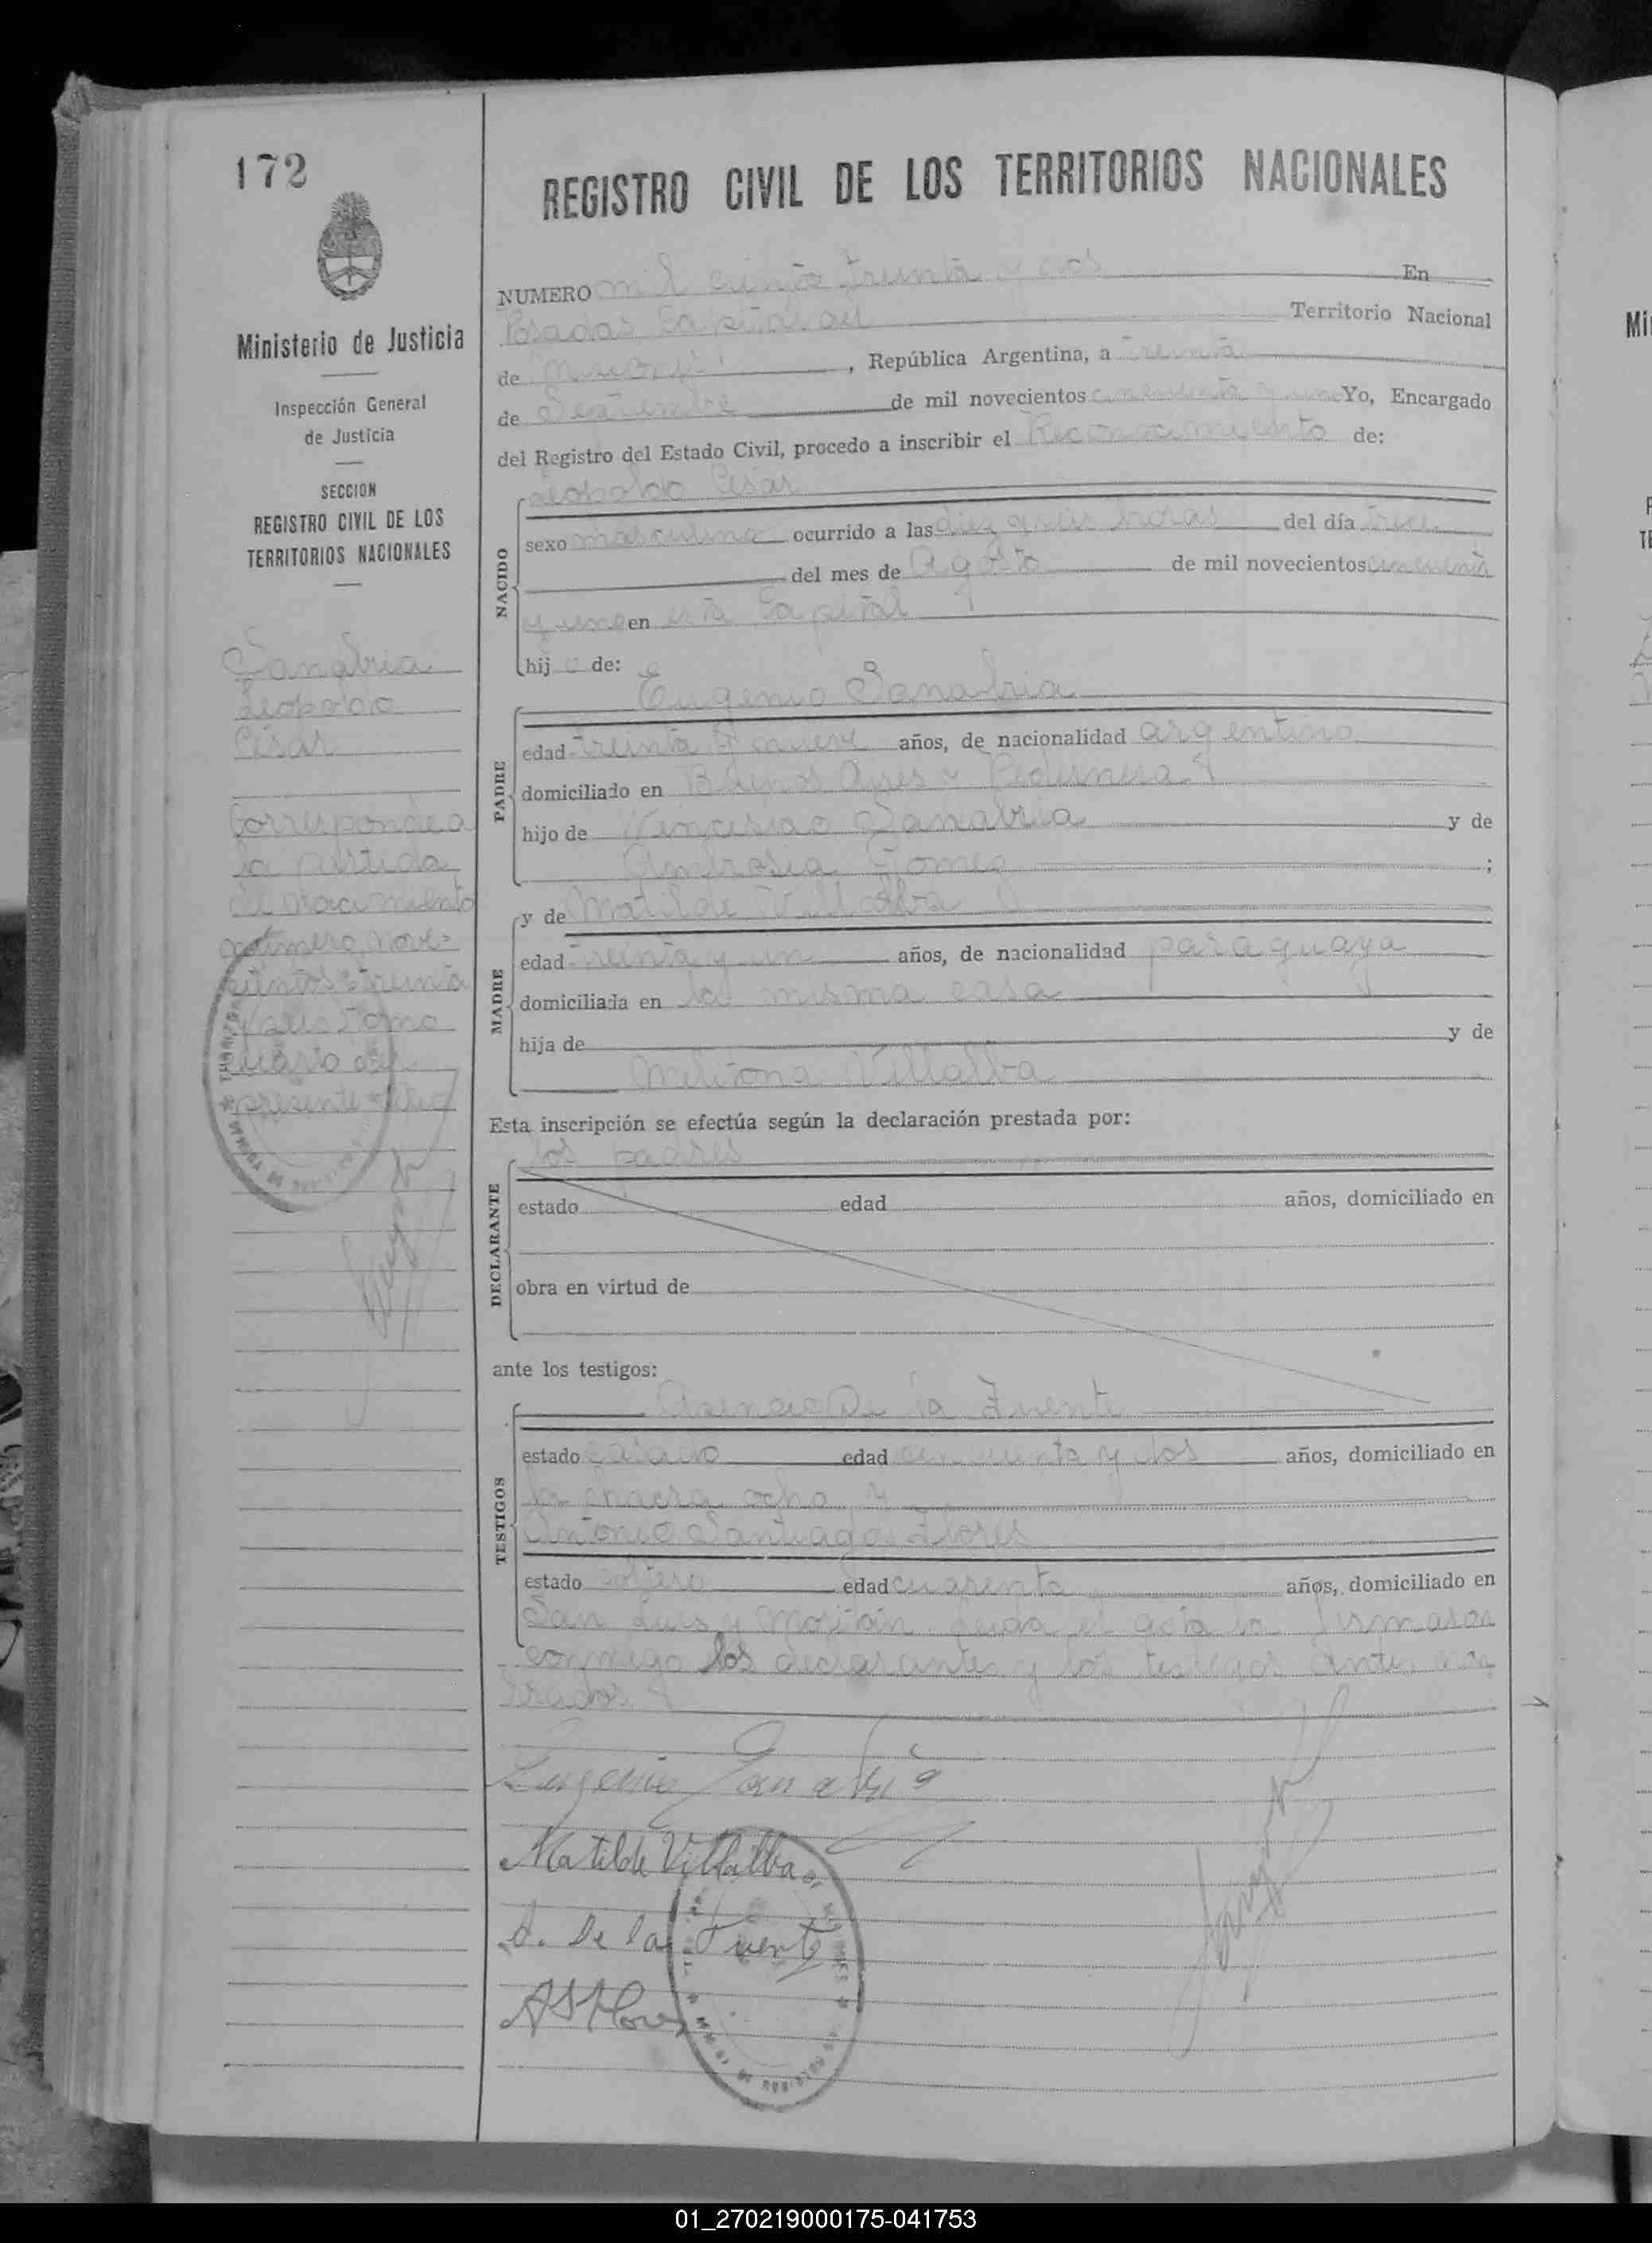 172
Ministerio de Justicia
Inspección General
de Justicia
SECCION
REGISTRO CIVIL DE LOS
TERRITORIOS NACIONALES
Sanabria
Leopoldo
César
Corresponde a
la partida
de nacimiento
número nove=
cientos treinta
tomo
cuarto del
presente año
REGISTRO CIVIL DE LOS TERRITORIOS NACIONALES
NUMERO mil ciento treinta y dos En
Posadas Capital del Territorio Nacional
de Misiones, República Argentina, a treinta
de Septiembre de mil novecientos cincuenta y uno Yo, Encargado
del Registro del Estado Civil, procedo a inscribir el Reconocimiento de:
NACIDO
Leopoldo César
sexo masculino ocurrido a las diez y seis horas del día trece
del mes de Agosto de mil novecientos cincuenta
y uno en esta Capital
hijo de:
PADRE
Eugenio Sanabria
edad treinta y nueve años, de nacionalidad argentino
domiciliado en Buenos Ayres y Pedernera
hijo de Wenceslao Sanabria y de
Ambrosia Gomez ;
MADRE
y de Matilde Villalba
edad treinta y un años, de nacionalidad paraguaya
domiciliada en la misma casa
hija de y de
Melitona Villalba
Esta inscripción se efectúa según la declaración prestada por:
DECLARANTE
los padres
estado edad años, domiciliado en
obra en virtud de
ante los testigos:
TESTIGOS
Asencio De la Fuente
estado casado edad cincuenta y dos años, domiciliado en
la chacra ocho y
Antonio Santiago Flores
estado soltero edad cuarenta años, domiciliado en
San Luis y Moritán. Leida el acta la firmaron
conmigo los declarantes y los testigos antes nom
brados.
Eugenio Sanabria
Matilde Villalba
A. De la Fuente
A S Flores
01_270219000175-041753